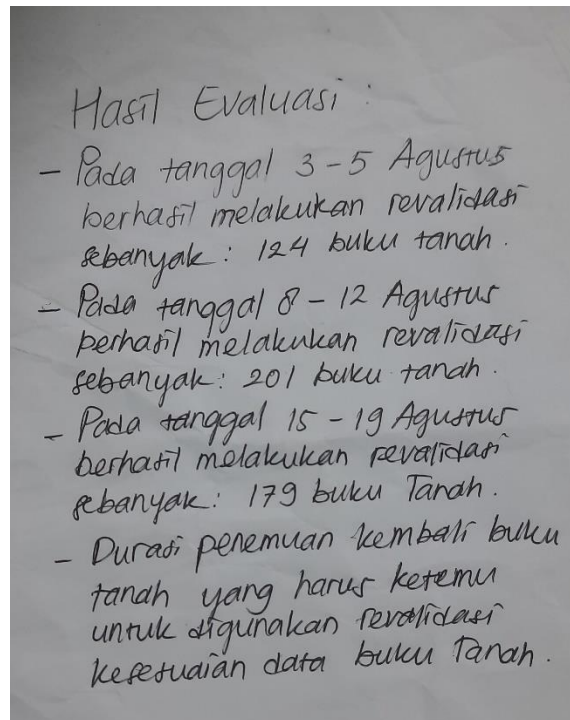 Hasil Evaluasi :
- Pada tanggal 3-5 Agustus
berhasil melakukan revalidasi
sebanyak : 124 buku tanah .
- Pada tanggal 8 - 12 Agustus
berhasil melakukan revalidasi
sebanyak : 201 buku tanah .
- Pada tanggal 15 - 19 Agustus
berhasil melakukan revalidasi
sebanyak : 179 buku Tanah .
- Durasi penemuan kembali buku
tanah yang harus ketemu
untuk digunakan revalidasi
kesesuaian data buku Tanah .